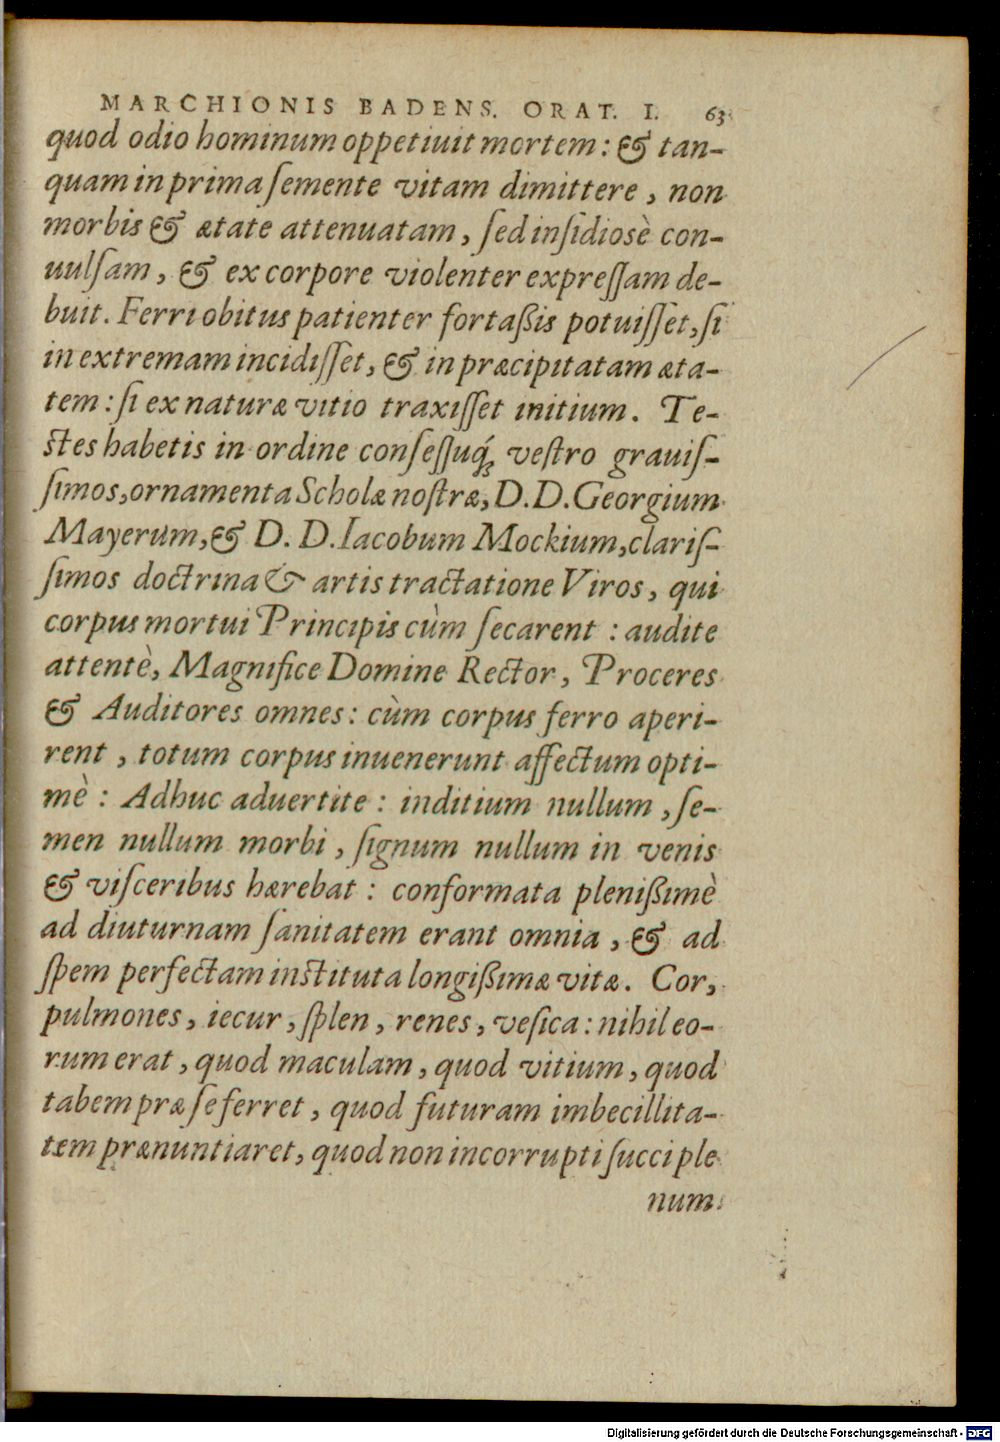 MARCHIONIS BADENS. ORAT. I. 63
quod odio hominum oppetiuit mortem: & tan-
quam in prima ſemente vitam dimittere, non
morbis & ætate attenuatam, ſed inſidioſè con-
uulſam, & ex corpore violenter expreſſam de-
buit. Ferri obitus patienter fortaßis potuiſſet, ſi
in extremam incidiſſet, & in præcipitatam æta-
tem: ſi ex naturæ vitio traxiſſet initium. Te-
ſtes habetis in ordine conſeſſuq́; veſtro grauiſ-
ſimos, ornamenta Scholæ noſtræ, D. D. Georgium
Mayerum, & D. D. Iacobum Mockium, clariſ-
ſimos doctrina & artis tractatione Viros, qui
corpus mortui Principis cùm ſecarent: audite
attentè, Magnifice Domine Rector, Proceres
& Auditores omnes: cùm corpus ferro aperi-
rent, totum corpus inuenerunt affectum opti-
mè: Adhuc aduertite: inditium nullum, ſe-
men nullum morbi, ſignum nullum in venis
& viſceribus hærebat: conformata plenißimè
ad diuturnam ſanitatem erant omnia, & ad
ſpem perfectam inſtituta longißimæ vitæ. Cor,
pulmones, iecur, ſplen, renes, veſica: nihil eo-
rum erat, quod maculam, quod vitium, quod
tabem præ ſe ferret, quod futuram imbecillita-
tem prænuntiaret, quod non incorrupti ſucci ple
num
Digitalisierung gefördert durch die Deutsche Forschungsgemeinschaft - DFG